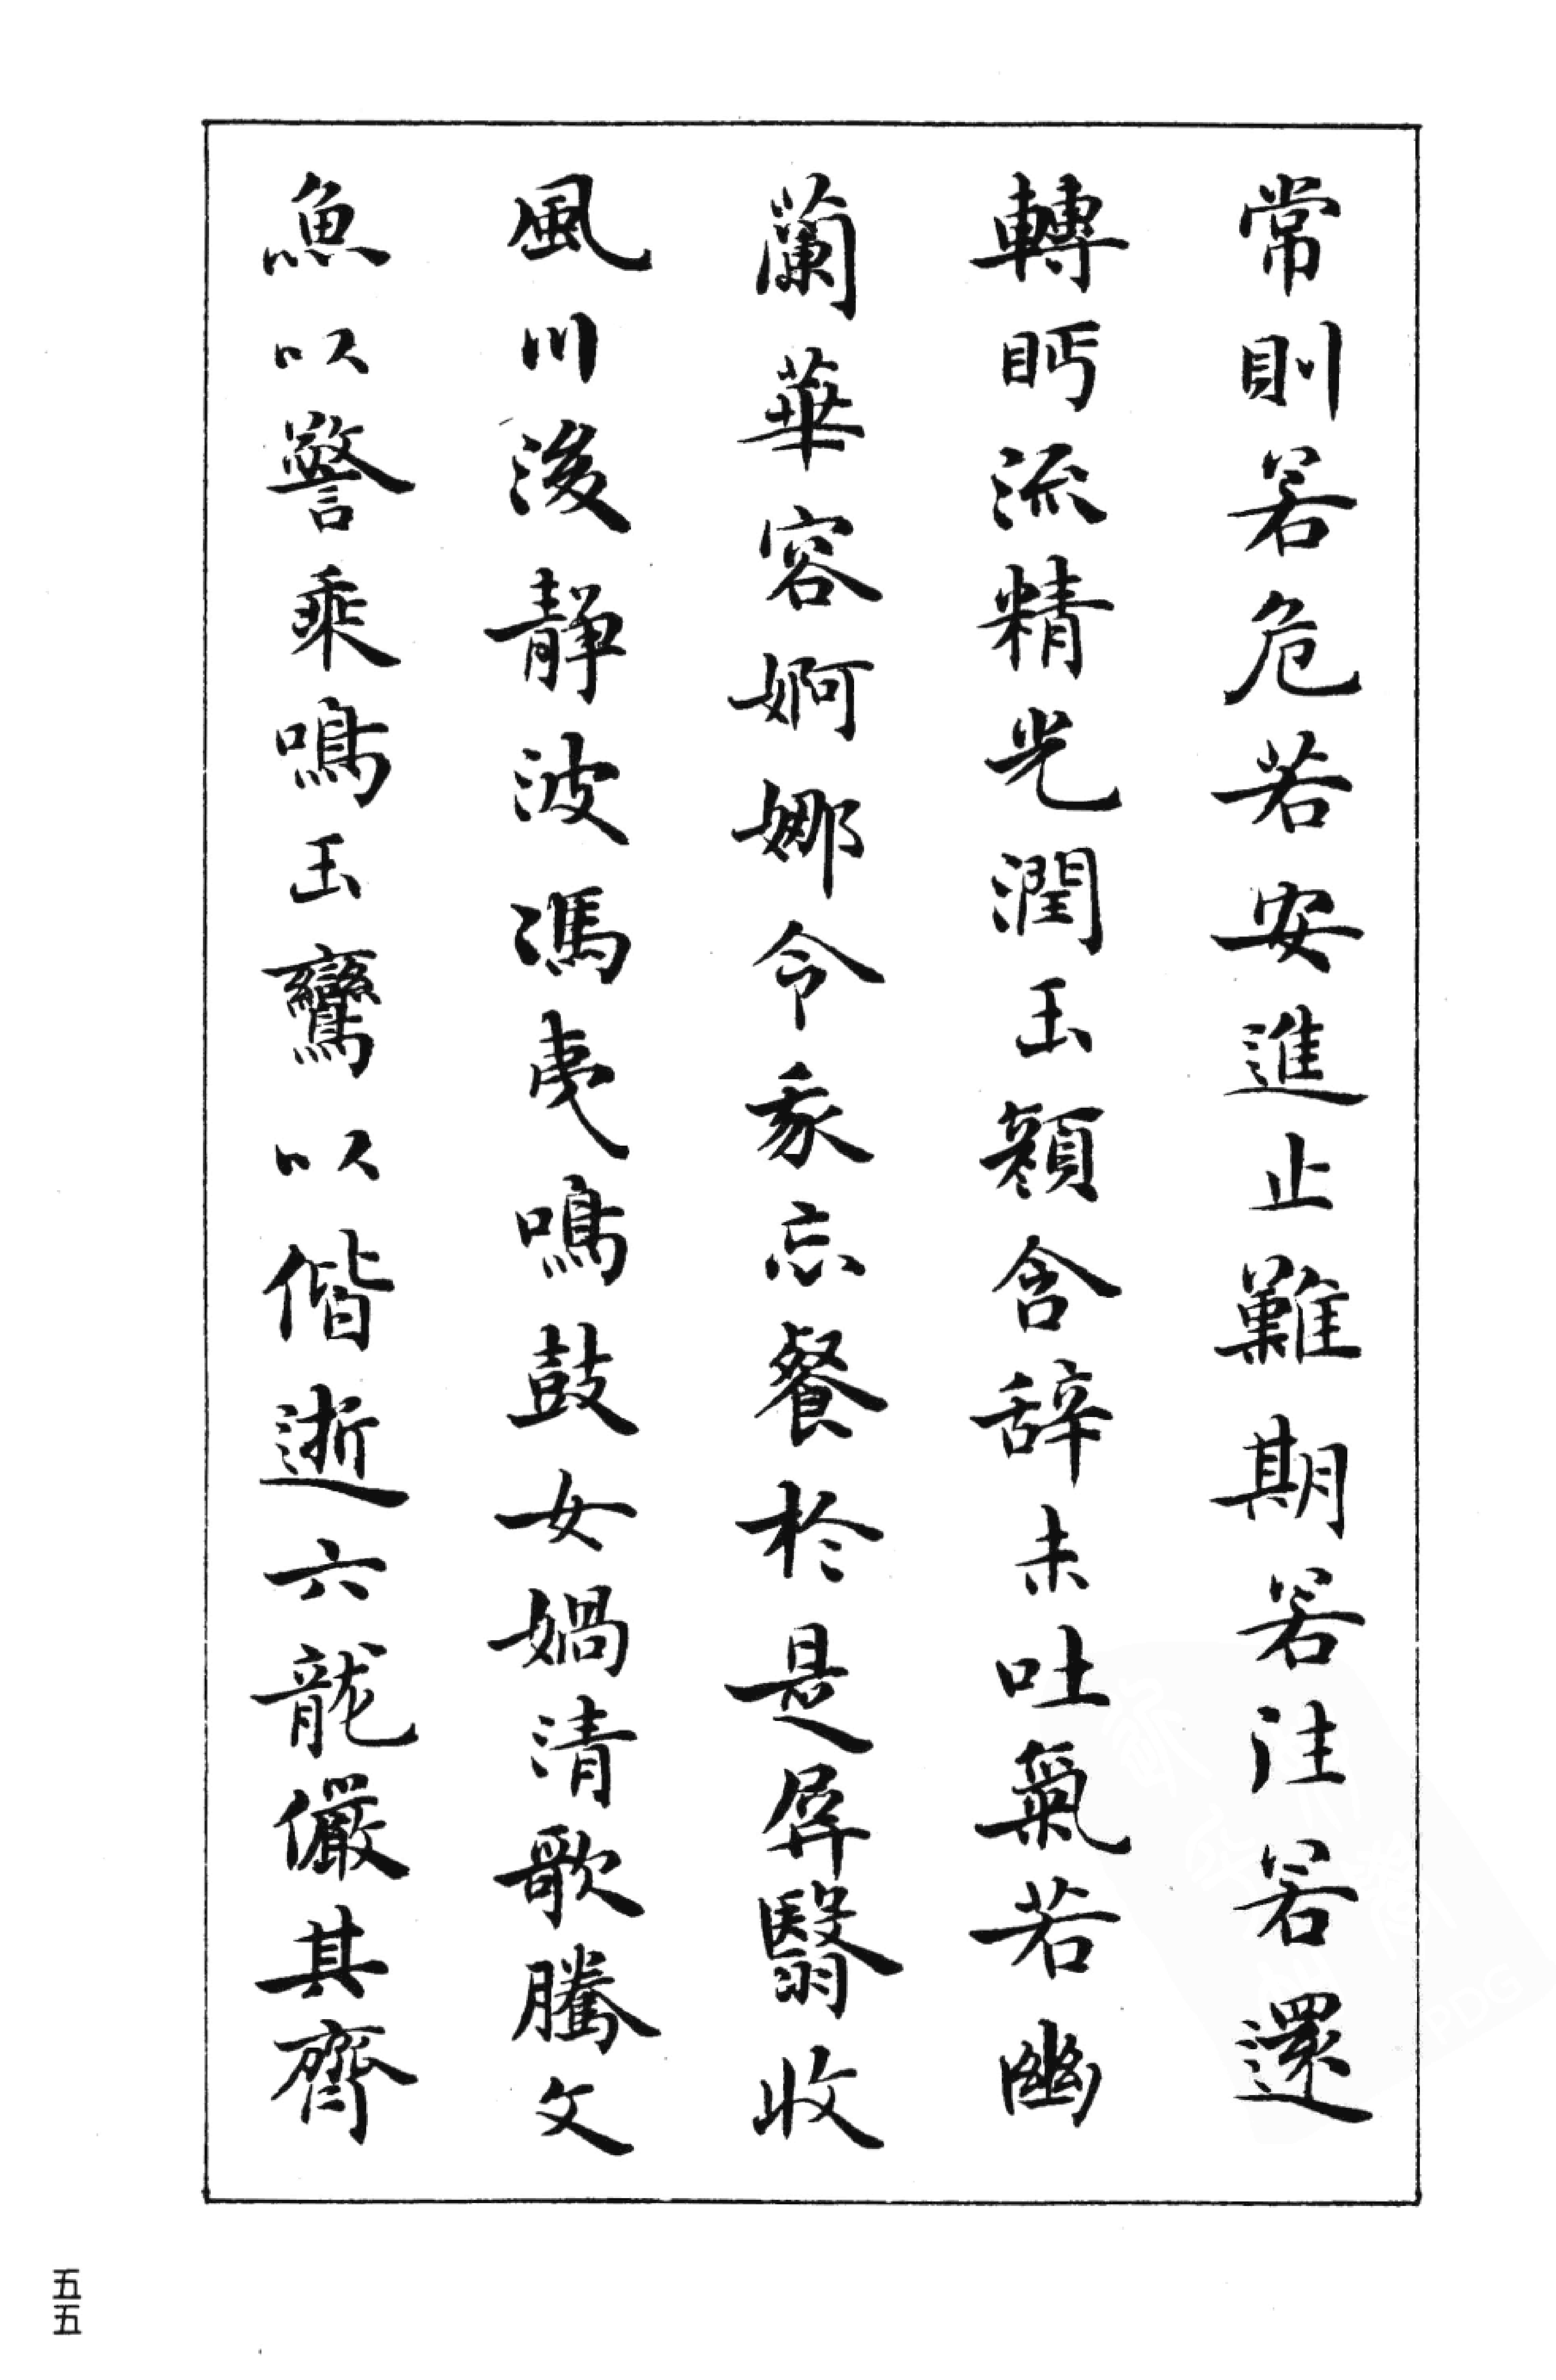 常則若危若安進止難期若注若還
轉眄流精光潤玉顏含辞未吐氣若幽
蘭華容婀娜令我忘餐於是屏翳收
風川後静波馮夷鳴鼓女媧清歌騰文
魚以警乘鳴玉鸞以偕逝六龍儼其齊
五五